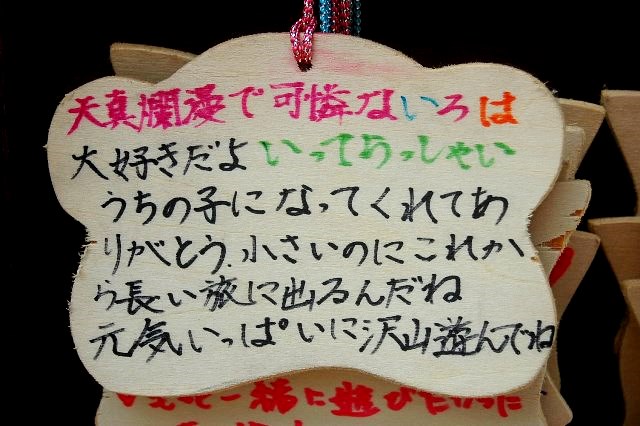 天真爛漫で可憐ないろは
大好きだよいってらっしゃい
うちの子になってくれてあ
りがとう。小さいのにこれか
ら長い旅に出るんだね
元気いっぱいに沢山遊んでね
もっと一緒に遊びたかった